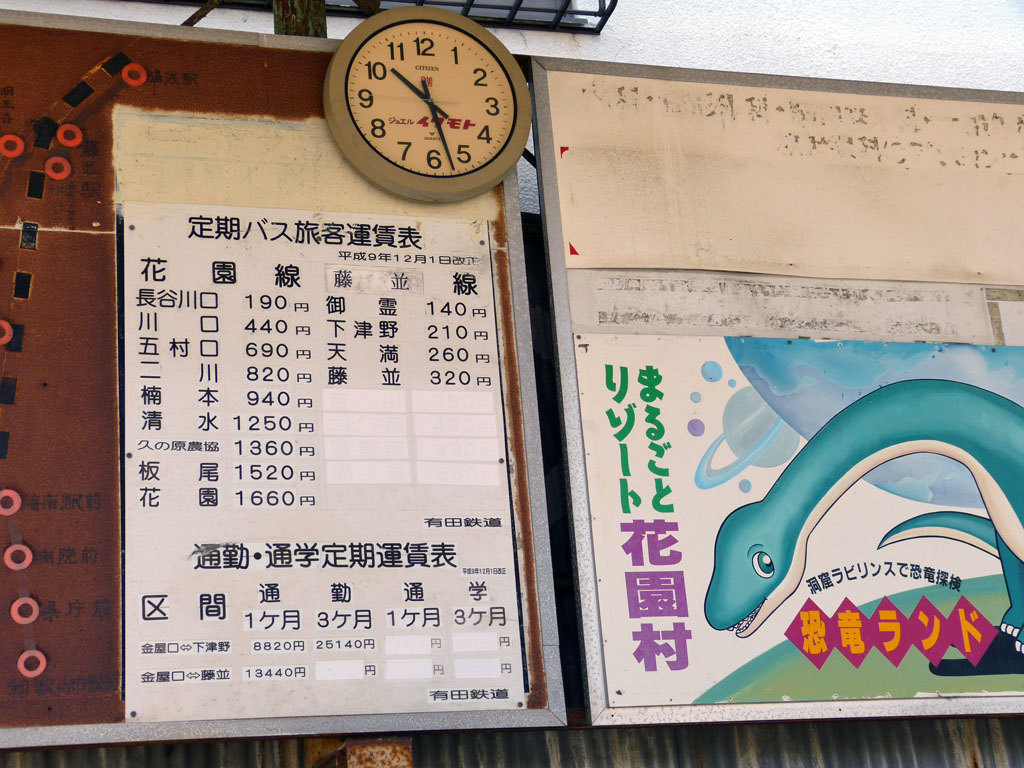 湯浅駅
藤並駅
12
1
2
3
4
5
6
7
8
9
10
11
CITIZEN
贈
ジュエル イワモト
定期バス旅客運賃表
平成9年12月1日改正
花園線
長谷川口 190円
川口 440円
五村口 690円
二川 820円
楠本 940円
清水 1250円
久の原農協 1360円
板尾 1520円
花園 1660円
藤並線
御霊 140円
下津野 210円
天満 260円
藤並 320円
有田鉄道
通勤・通学定期運賃表
平成9年12月1日改正
区間 通勤 通学
1ケ月 3ケ月 1ケ月 3ケ月
金屋口⇔下津野 8820円 25140円 円 円
金屋口⇔藤並 13440円 円 円 円
有田鉄道
病院前
県庁前
まるごと
リゾート
花園村
洞窟ラビリンスで恐竜探検
恐竜ランド